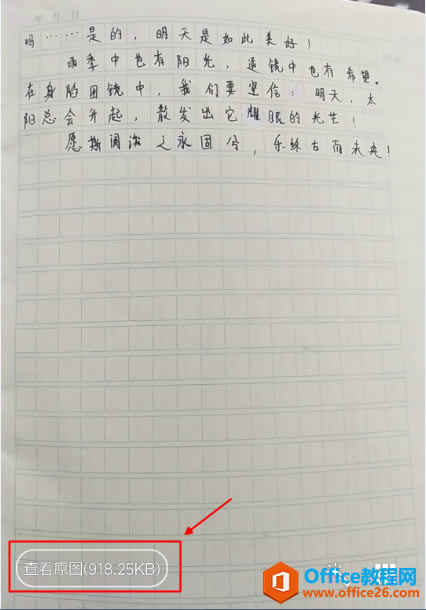 年 月 日
吗……是的，明天是如此美好！
雨季中也有阳光，逆镜中也有希望。
在身陷困镜中，我们要坚信：明天，太
阳总会升起，散发出它耀眼的光芒！
愿斯阔海之永固兮，乐终古而未央！
查看原图(918.25KB)
Office教程网
www.office26.com